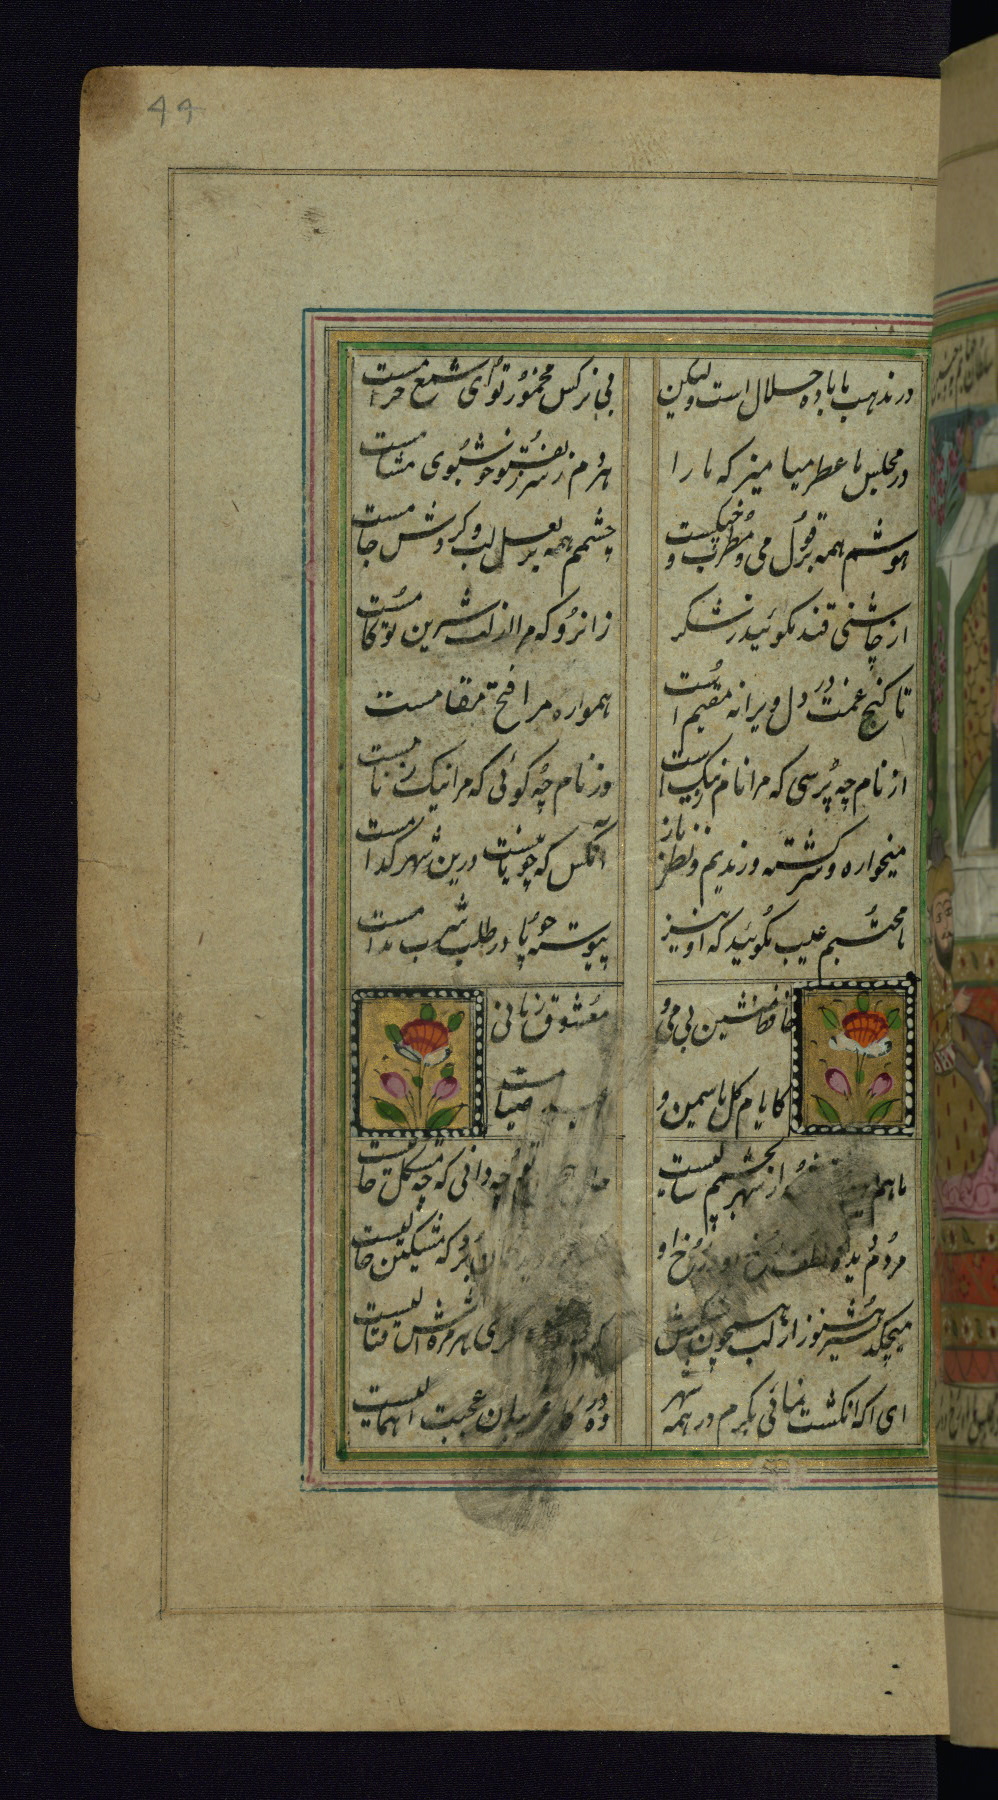 44
در مذهب ما باده حلال است ولیکن
بی نرکس مخمور تو ای شمع حرامست
در مجلس ما عطر میامیز که ما را
هردم ز سر زلف تو خوشبوی مشامست
هوشم همه بر قول می و مطرب و
چشمم همه بر لعل لب و کردش جامست
از چاشنی قند مکوئید ز شکر
زانرو که مرا از لب شیرین تو کامست
تا کنج غمت در دل ویرانه مقیم است
همواره مرا مقامست
از نام چه پرسی که مرا نام ز ننک است
وز نام چه کوئی که مرا ننک ز نامست
میخواره و سرکشته و رندیم و نظر باز
آنکس که چو ما نیست درین شهر کدامست
با محتسبم عیب مکوئید که او نیز
پیوسته چو ما در طلب شرب مدامست
حافظ منشین بی می و
معشوق زمانی
کایام کل و یاسمین و
صیامست
ماهم از شهر بچشمم سالیست
چه دانی که چه مشکل حالیست
مردم دیده ز لطف رخ او در رخ او
که مشکین خالیست
میچکد شیر هنوز از لب همچون شکرش
کرچه هر مژه اش قتالیست
ای که انکشت نمائی بکرم در همه شهر
وه که در کار غریبان عجبت اهمالیست